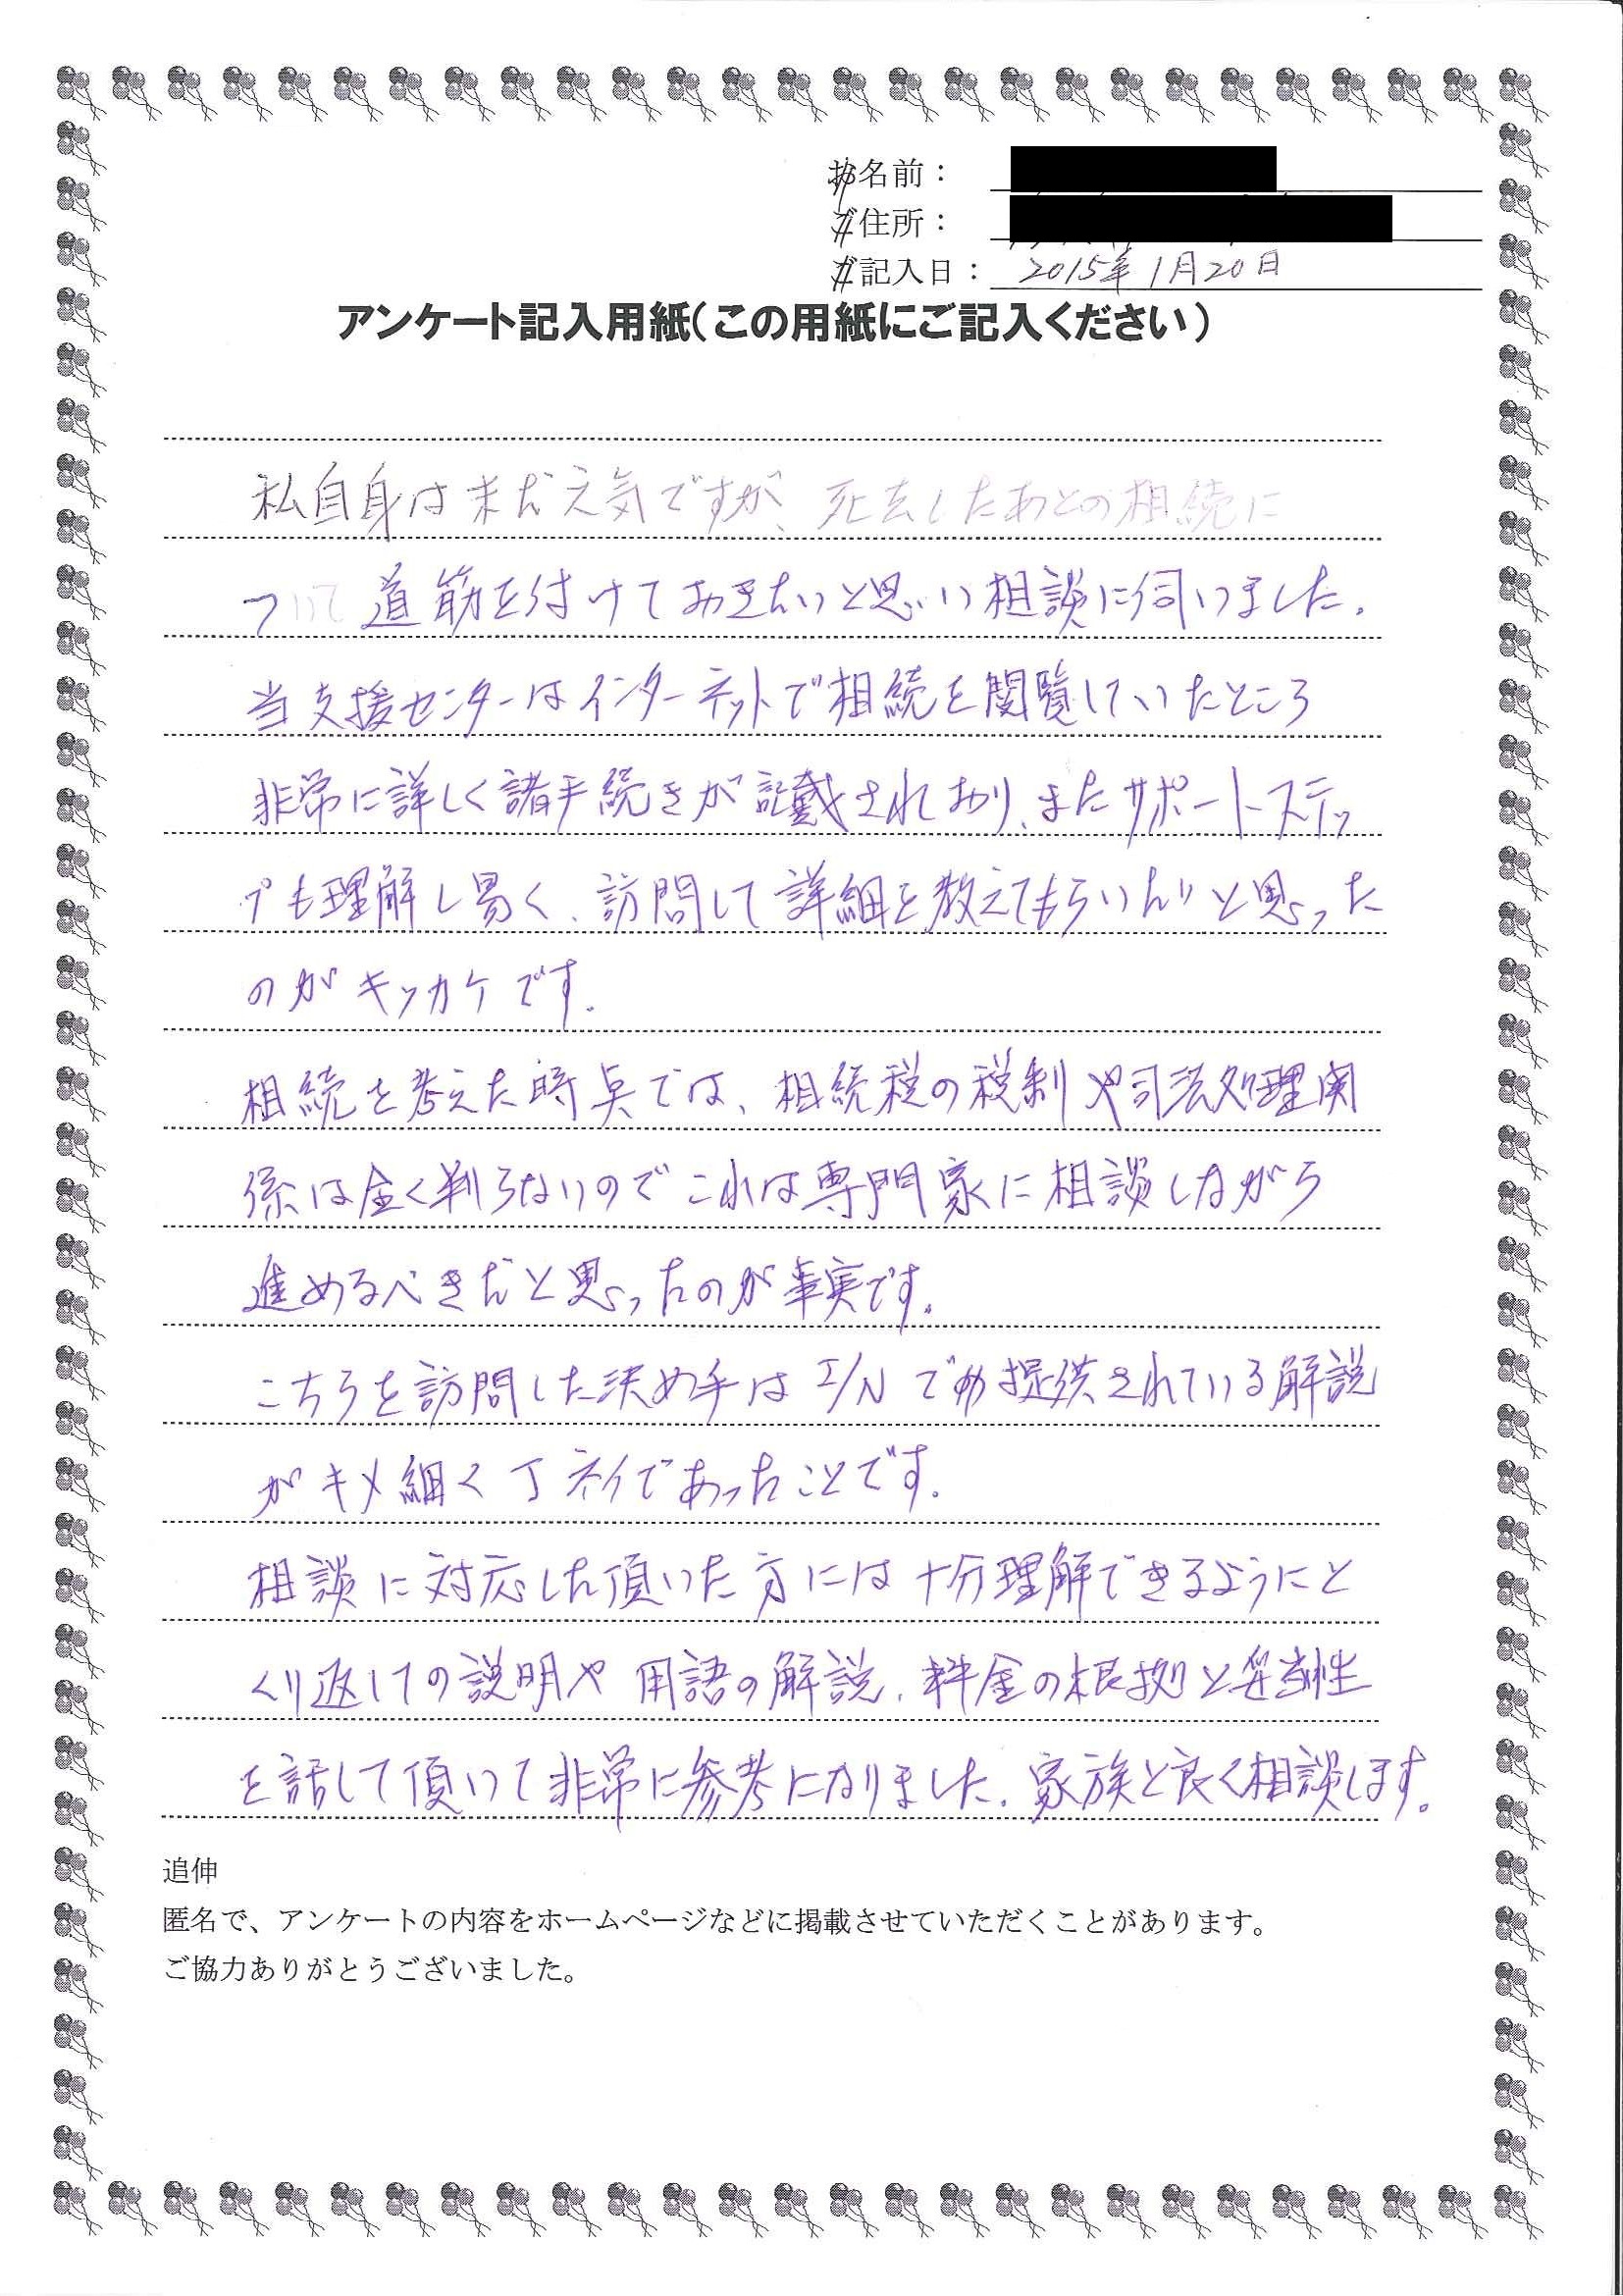 お名前：
ご住所：
ご記入日： 2015年1月20日
アンケート記入用紙（この用紙にご記入ください）
私自身は未だ元気ですが、死去したあとの相続に
ついて道筋を付けておきたいと思い相談に伺いました.
当支援センターはインターネットで相続を閲覧していたところ
非常に詳しく諸手続きが記載されおり、またサポートステッ
プも理解し易く、訪問して詳細を教えてもらいたいと思った
のがキッカケです.
相続を考えた時点では、相続税の税制や司法処理関
係は全く判らないのでこれは専門家に相談しながら
進めるべきだと思ったのが事実です.
こちらを訪問した決め手はI/Nで提供されている解説
がキメ細く丁ネイであったことです.
相談に対応した頂いた方には十分理解できるようにと
くり返しての説明や用語の解説、料金の根拠と妥当性
を話して頂いて非常に参考になりました. 家族と良く相談します.
追伸
匿名で、アンケートの内容をホームページなどに掲載させていただくことがあります。
ご協力ありがとうございました。